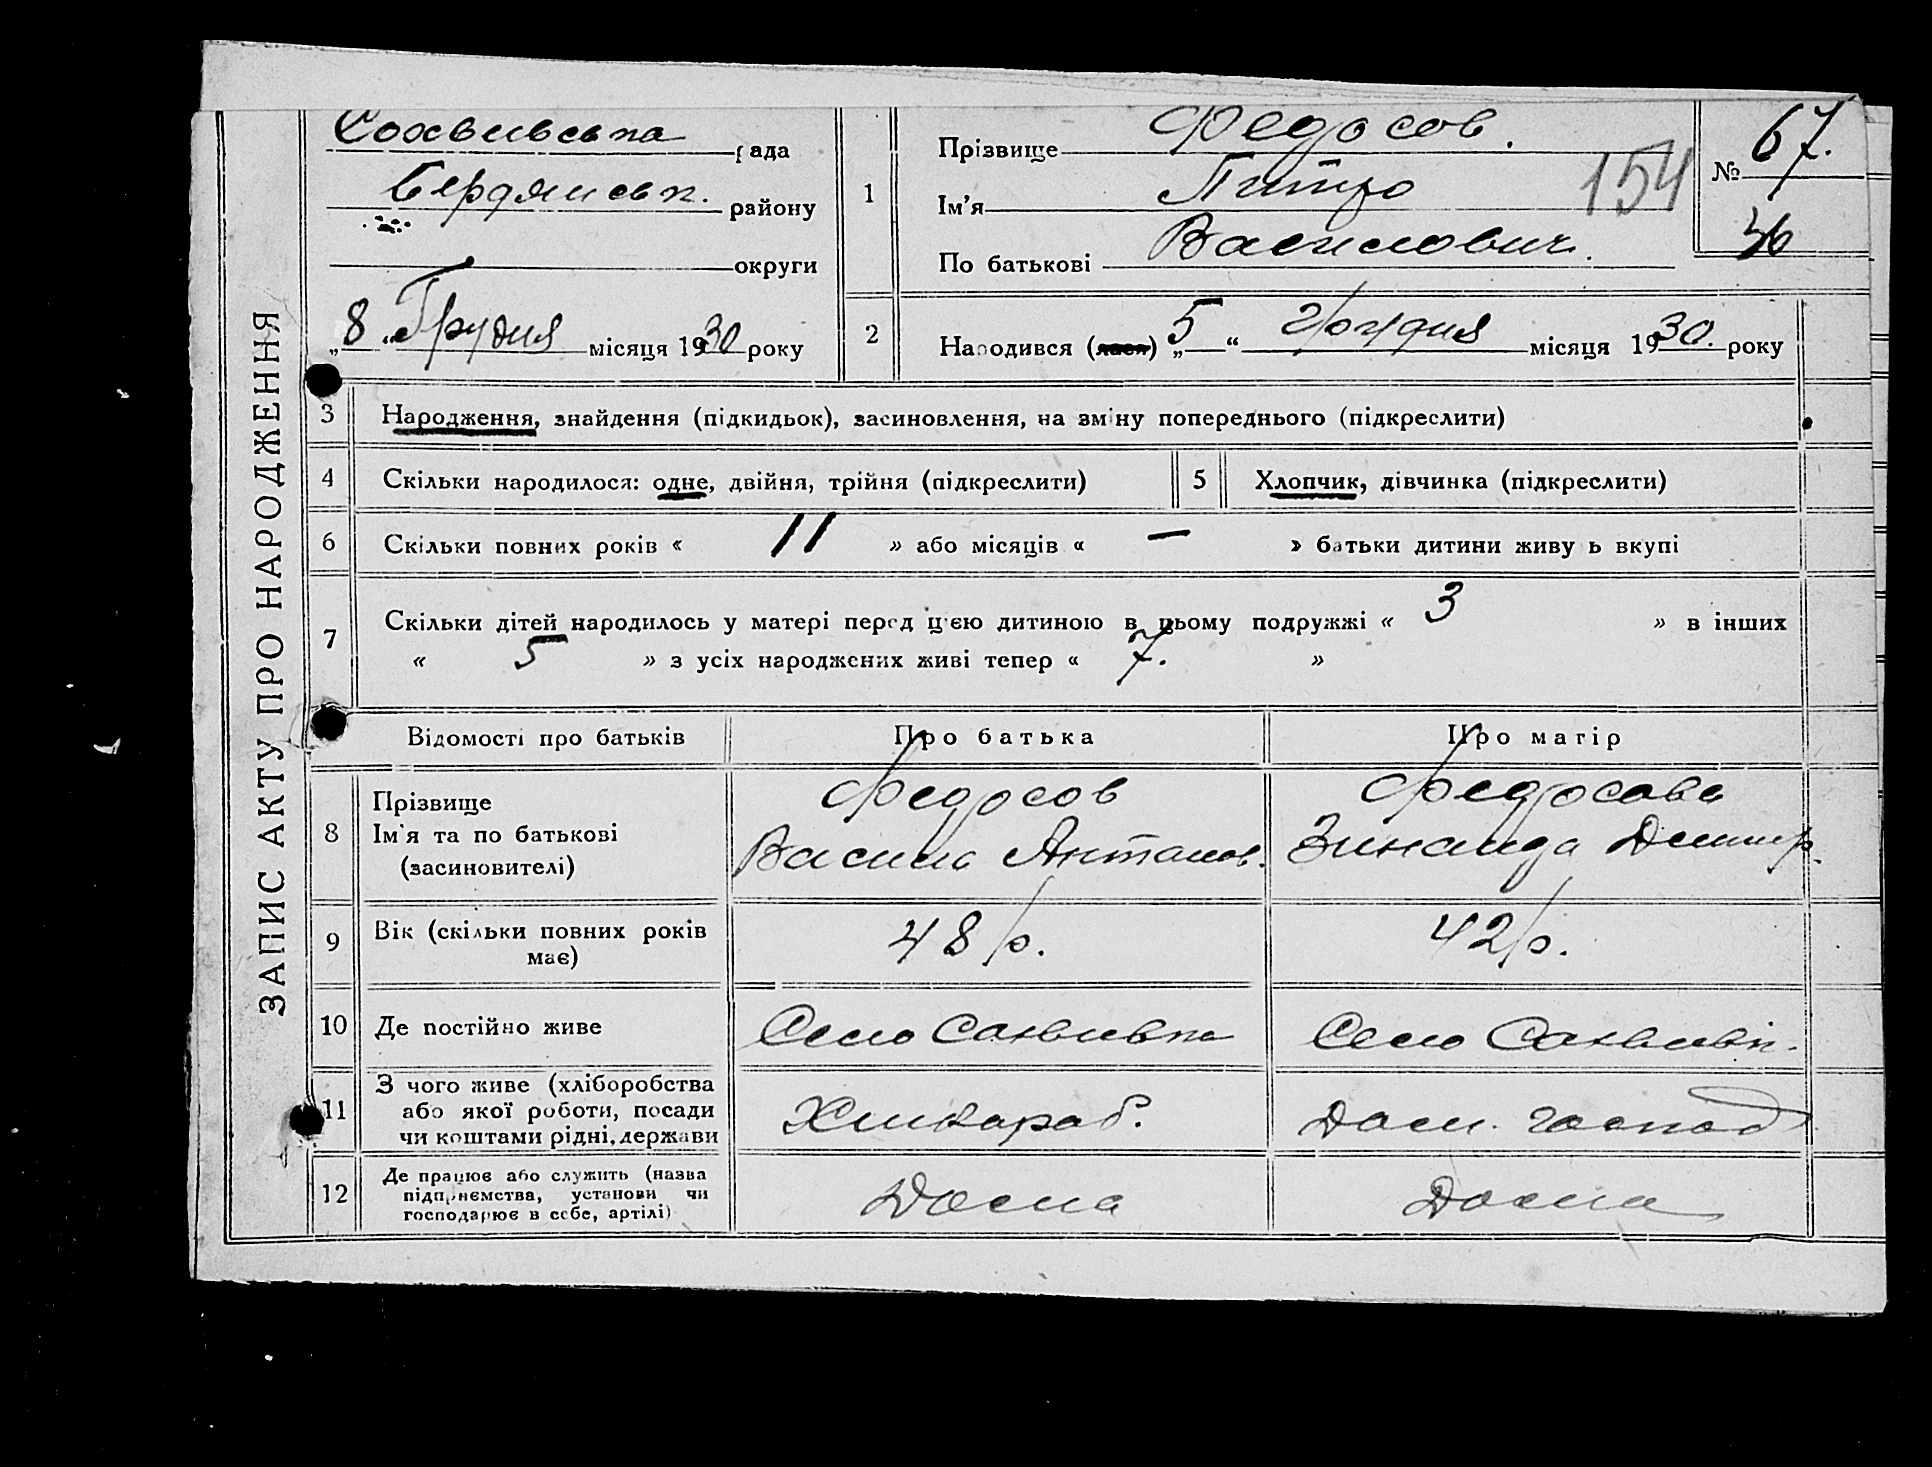 ЗАПИС АКТУ ПРО НАРОДЖЕННЯ
Софиивська рада
Бердянськ. району
округи
„8“ Грудня місяця 1930 року
1
Прізвище Федосов.
Ім'я Питро
По батькові Васильович.
154
№ 67.
36
2
Народився (лася) „5“ грудня місяця 1930. року
3 Народження, знайдення (підкидьок), засиновлення, на зміну попереднього (підкреслити)
4 Скільки народилося: одне, двійня, трійня (підкреслити)
5 Хлопчик, дівчинка (підкреслити)
6 Скільки повних років « 11 » або місяців « — » батьки дитини живуть вкупі
7 Скільки дітей народилось у матері перед цією дитиною в цьому подружжі « 3 » в інших
« 5 » з усіх народжених живі тепер « 7. »
Відомості про батьків Про батька Про матір
8 Прізвище Федосов Федосова
Ім'я та по батькові Василь Антонов. Зинаида Демитр.
(засиновителі)
9 Вік (скільки повних років має) 48 р. 42 р.
10 Де постійно живе Село Софиивка Село Софиивк.
11 З чого живе (хліборобства
або якої роботи, посади
чи коштами рідні, держави Хлибороб. Дом. господ
12 Де працює або служить (назва
підприємства, установи чи
господарює в себе, артілі) Дома Дома